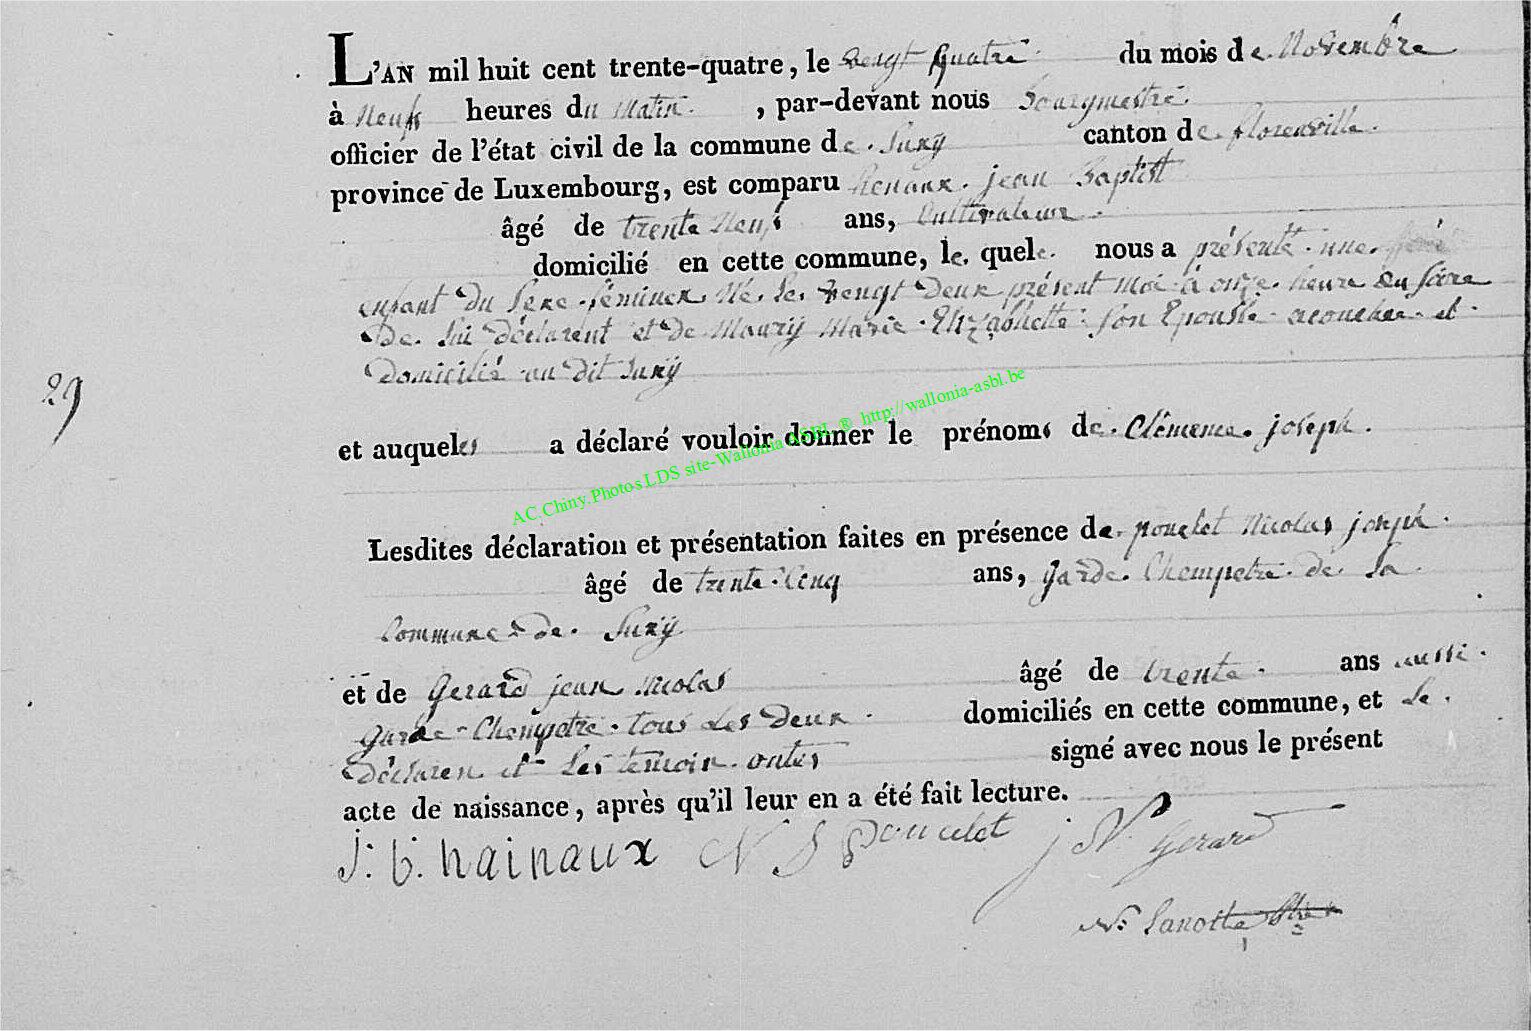 L'AN mil huit cent trente-quatre, le vengt quatre du mois de Novembre
à neufs heures du matin. , par-devant nous Bourgmestre.
officier de l'état civil de la commune de. Suxÿ canton de florenville.
province de Luxembourg, est comparu Henaux. jean Baptist
âgé de trente neufs ans, Cultivateur.
domicilié en cette commune, le. quele. nous a présenté. une.
enfant du sexe. féminen Né. Le. vengt deux présent moi à onze. heure du soire
De. lui déclarent et de Maury Marie. Elizabhette. son Epousse acouchée. et.
Domicilié au dit Suxÿ
29
et auqueles a déclaré vouloir donner le prénoms de. Clémence. joseph.
AC.Chiny.Photos LDS site-Wallonia ASBL ® http://wallonia-asbl.be
Lesdites déclaration et présentation faites en présence de. poncelet Nicolas joseph.
âgé de trente. Cenq ans, garde. Chempetre. de la.
Commune de. Suxÿ
et de Gerard jean Nicolas âgé de trente. ans aussi.
garde-Chempetre. tous les deux. domiciliés en cette commune, et Le.
Déclaren et Les temoin. ontes signé avec nous le présent
acte de naissance, après qu'il leur en a été fait lecture.
J: b. hainaux N J poncelet j N Gerard
N: Lanotte